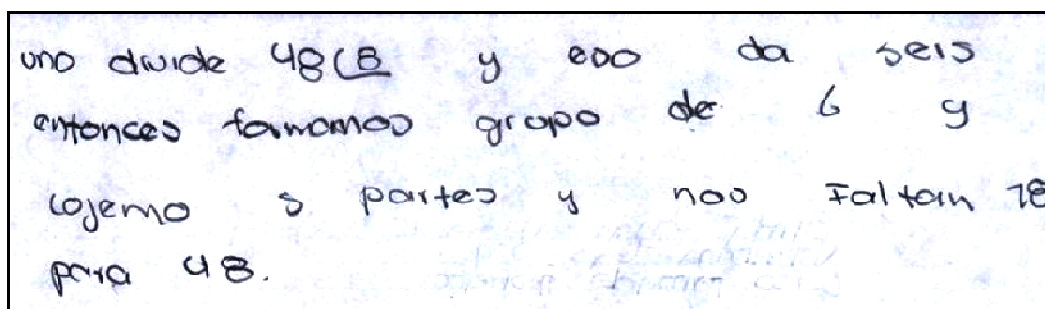 uno divide 48(8 y eso da seis
entonces formamos grupo de 6 y
cojemo 5 partes y nos Faltan 18
para 48.